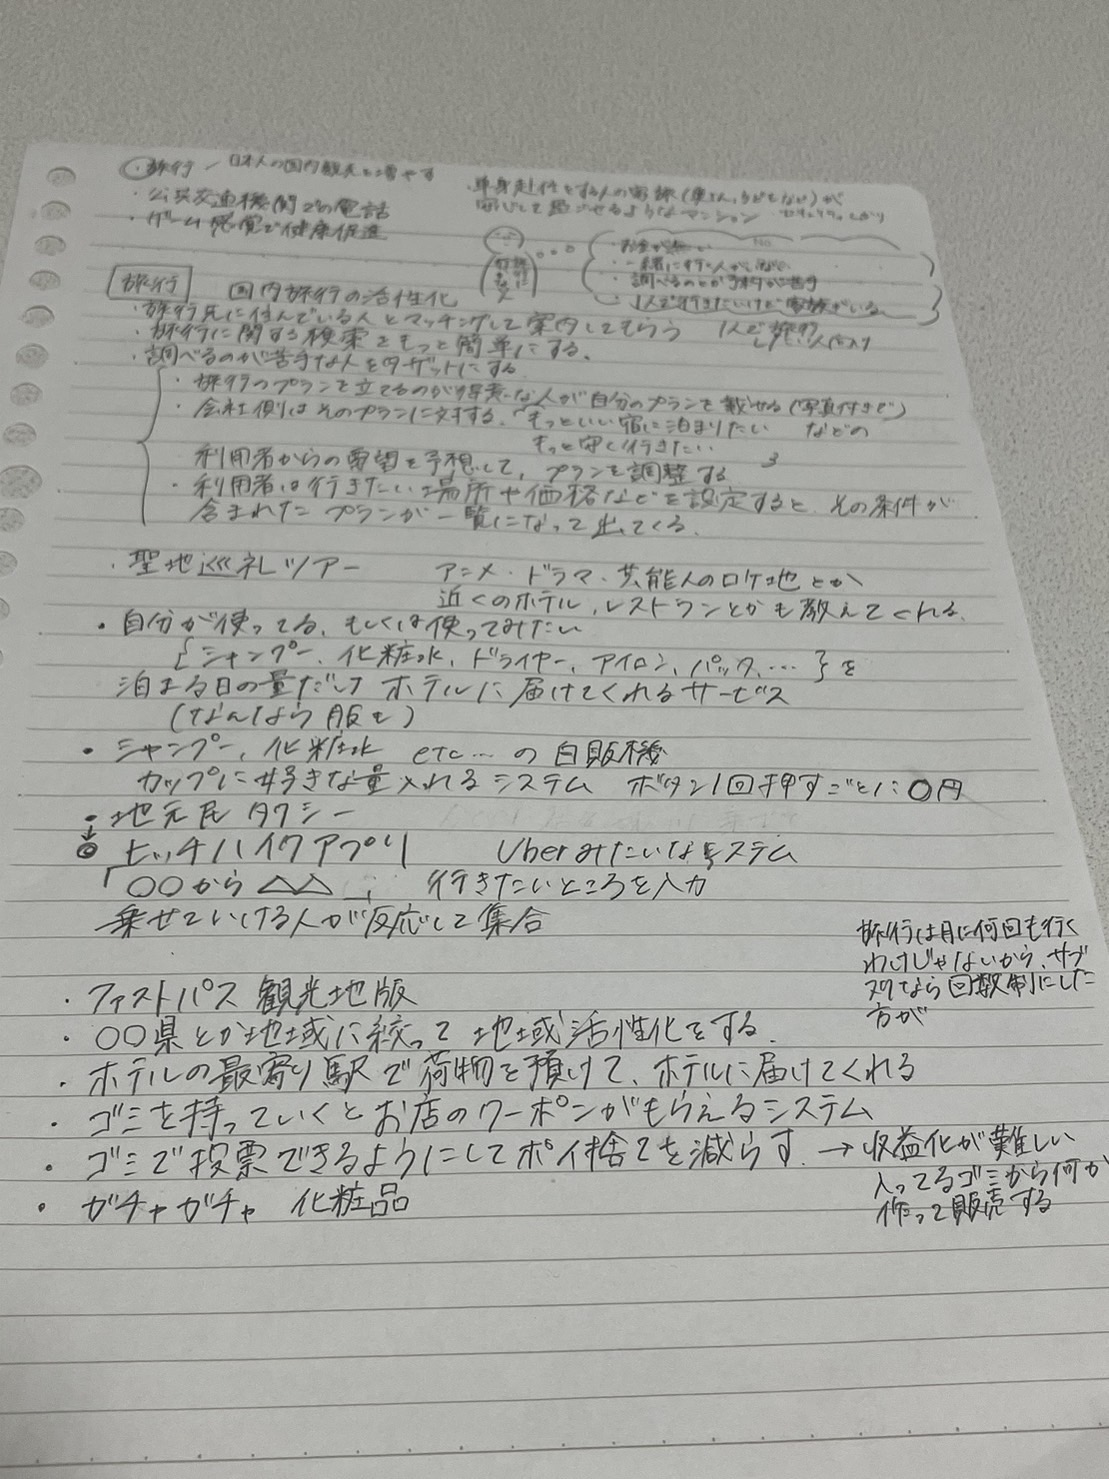 ・旅行 / 日本人の国内観光を増やす
・公共交通機関での電話
・ゲーム感覚で健康促進
・単身赴任をする人の家族(奥さん、子ども)が
安心して過ごせるようなマンション セキュリティしっかり
・お金が無い No
・一緒に行く人がいない
・調べるのとか予約が苦手
・1人で行きたいけど家族がいる
旅行 国内旅行の活性化
・旅行先に住んでいる人とマッチングして案内してもらう 1人で旅行
したい人
・旅行に関する検索をもっと簡単にする。
・調べるのが苦手な人をターゲットにする
・旅行のプランを立てるのが得意な人が自分のプランを載せる(写真付きで)
・会社側はそのプランに対する、「もっといい宿に泊まりたい などの
もっと安く行きたい
利用者からの要望を予想して、プランを調整する
・利用者は行きたい場所や価格などを設定すると、その条件が
含まれたプランが一覧になって出てくる。
・聖地巡礼ツアー アニメ・ドラマ・芸能人のロケ地とか
近くのホテル、レストランとかも教えてくれる。
・自分が使ってる、もしくは使ってみたい
{シャンプー、化粧水、ドライヤー、アイロン、パック、…}を
泊まる日の量だけ ホテルに届けてくれるサービス
(なんなら服も)
・シャンプー、化粧水 etc…の自販機
カップに好きな量入れるシステム ボタン1回押すごとに〇円
・地元民タクシー
↓
◎ ヒッチハイクアプリ Uberみたいなシステム
「〇〇から△△」 行きたいところを入力
乗せていける人が反応して集合
旅行は月に何回も行く
わけじゃないから、サブ
スクなら回数制にした
方が
・ファストパス 観光地版
・〇〇県とか地域に絞って地域活性化をする。
・ホテルの最寄り駅で荷物を預けて、ホテルに届けてくれる
・ゴミを持っていくとお店のクーポンがもらえるシステム
・ゴミで投票できるようにしてポイ捨てを減らす。→収益化が難しい
入ってるゴミから何か
作って販売する
・ガチャガチャ 化粧品